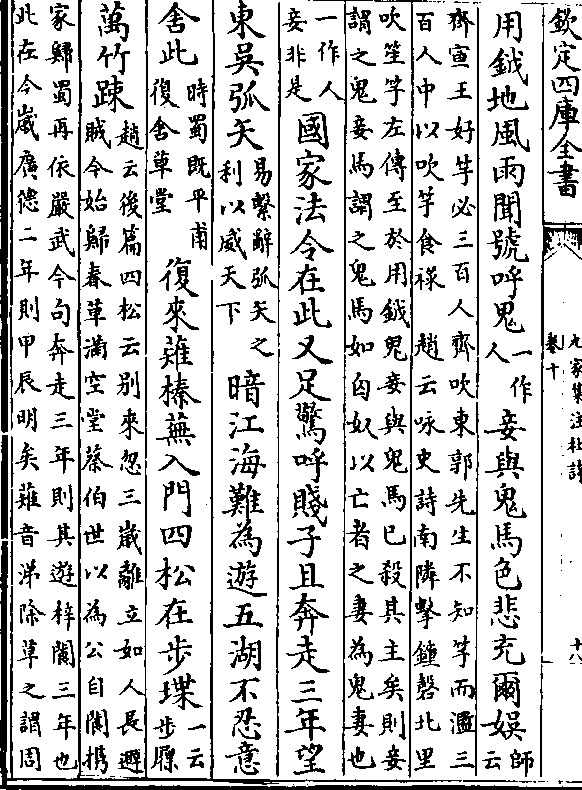 欽定四庫全書
九家集注杜詩
卷十
十八
用鉞地風雨聞號呼鬼一作人妾與鬼馬色悲充爾娛師云
齊宣王好竽必三百人齊吹東郭先生不知竽而濫三
百人中以吹竽食祿　趙云咏史詩南隣擊鍾磬北里
吹笙竽左傳至於用鉞鬼妾與鬼馬已殺其主矣則妾
謂之鬼妾馬謂之鬼馬如匈奴以亡者之妻為鬼妻也
一作人妾非是國家法令在此又足驚呼賤子且奔走三年望
東吳弧矢易繫辭弧矢之利以威天下暗江海難為遊五湖不忍意
舍此時蜀既平甫復舍草堂復來薙榛蕪入門四松在步堞一云步屧
萬竹踈趙云後篇四松云別來忽三歲離立如人長避賊今始歸春草滿空堂蔡伯世以為公自閬携
家歸蜀再依嚴武今句奔走三年則其遊梓閬三年也
此在今歲廣德二年則甲辰明矣薙音涕除草之謂周